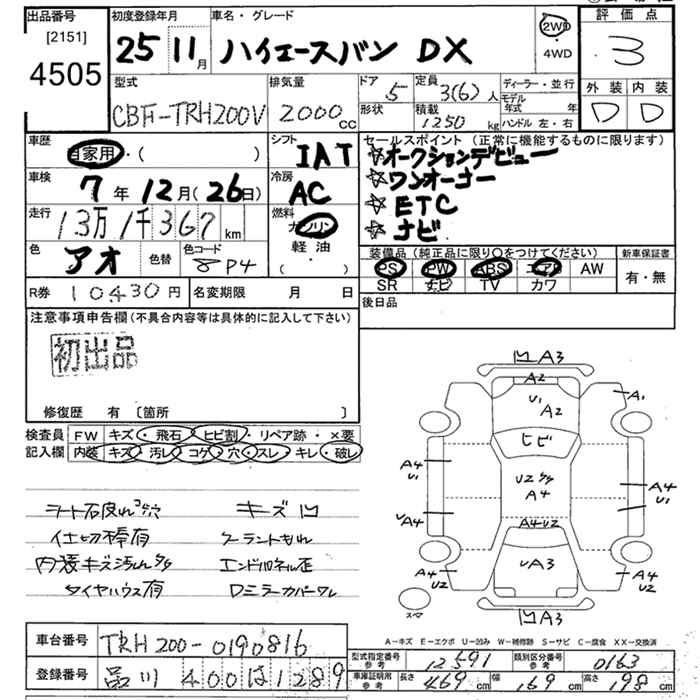 出品番号 初度登録年月 車名・グレード 評価点
[2151] 25 11月 ハイエースバン DX 2WD 3
4505 4WD
型式 排気量 ドア 定員 ディーラー・並行 外装 内装
CBF-TRH200V 2000cc 5 3(6)人 モデル年式 年 D D
形状 積載 1250kg ハンドル 左・右
車歴 シフト セールスポイント (正常に機能するものに限ります)
自家用・( ) IAT ☆オークションデビュー
車検 冷房 ☆ワンオーナー
7年12月(26日) AC ☆ETC
走行 燃料 ☆ナビ
13万1千367km ガソリン
色 色替 色コード 軽油 装備品 (純正品に限り○をつけてください) 新車保証書
アオ 8P4 ・( ) PS PW ABS エアB AW 有・無
SR ナビ TV カワ
R券 10430円 名変期限 月 日 後日品
注意事項申告欄(不具合内容等は具体的に記入して下さい)
初出品
修復歴 有 〔箇所 〕
検査員 FW キズ・飛石・ヒビ割・リペア跡・×要
記入欄 内装 キズ・汚レ・コゲ・穴・スレ・キレ・破レ
シート
キズ凹
仕切棒有
クーラントもれ
内張キズ汚れ
エンドパネル歪
タイヤハウス有
DミラーカバーワレI
凹A3
A2
U1
A2
A1
ヒビ
A4
U1
U2
A4
A4
U1
UA4
A4U2
A4
A4
U2
UA3
A4
U2
スペア
凹A3
A-キズ E-エクボ U-凹み W-補修跡 S-サビ C-腐食 XX-交換済
車台番号 TRH200-0190816
型式指定番号 参考 12591 類別区分番号 参考 0163
登録番号 品川 400は1289
車庫証明用 参考 長さ 469cm 幅 169cm 高さ 198cm